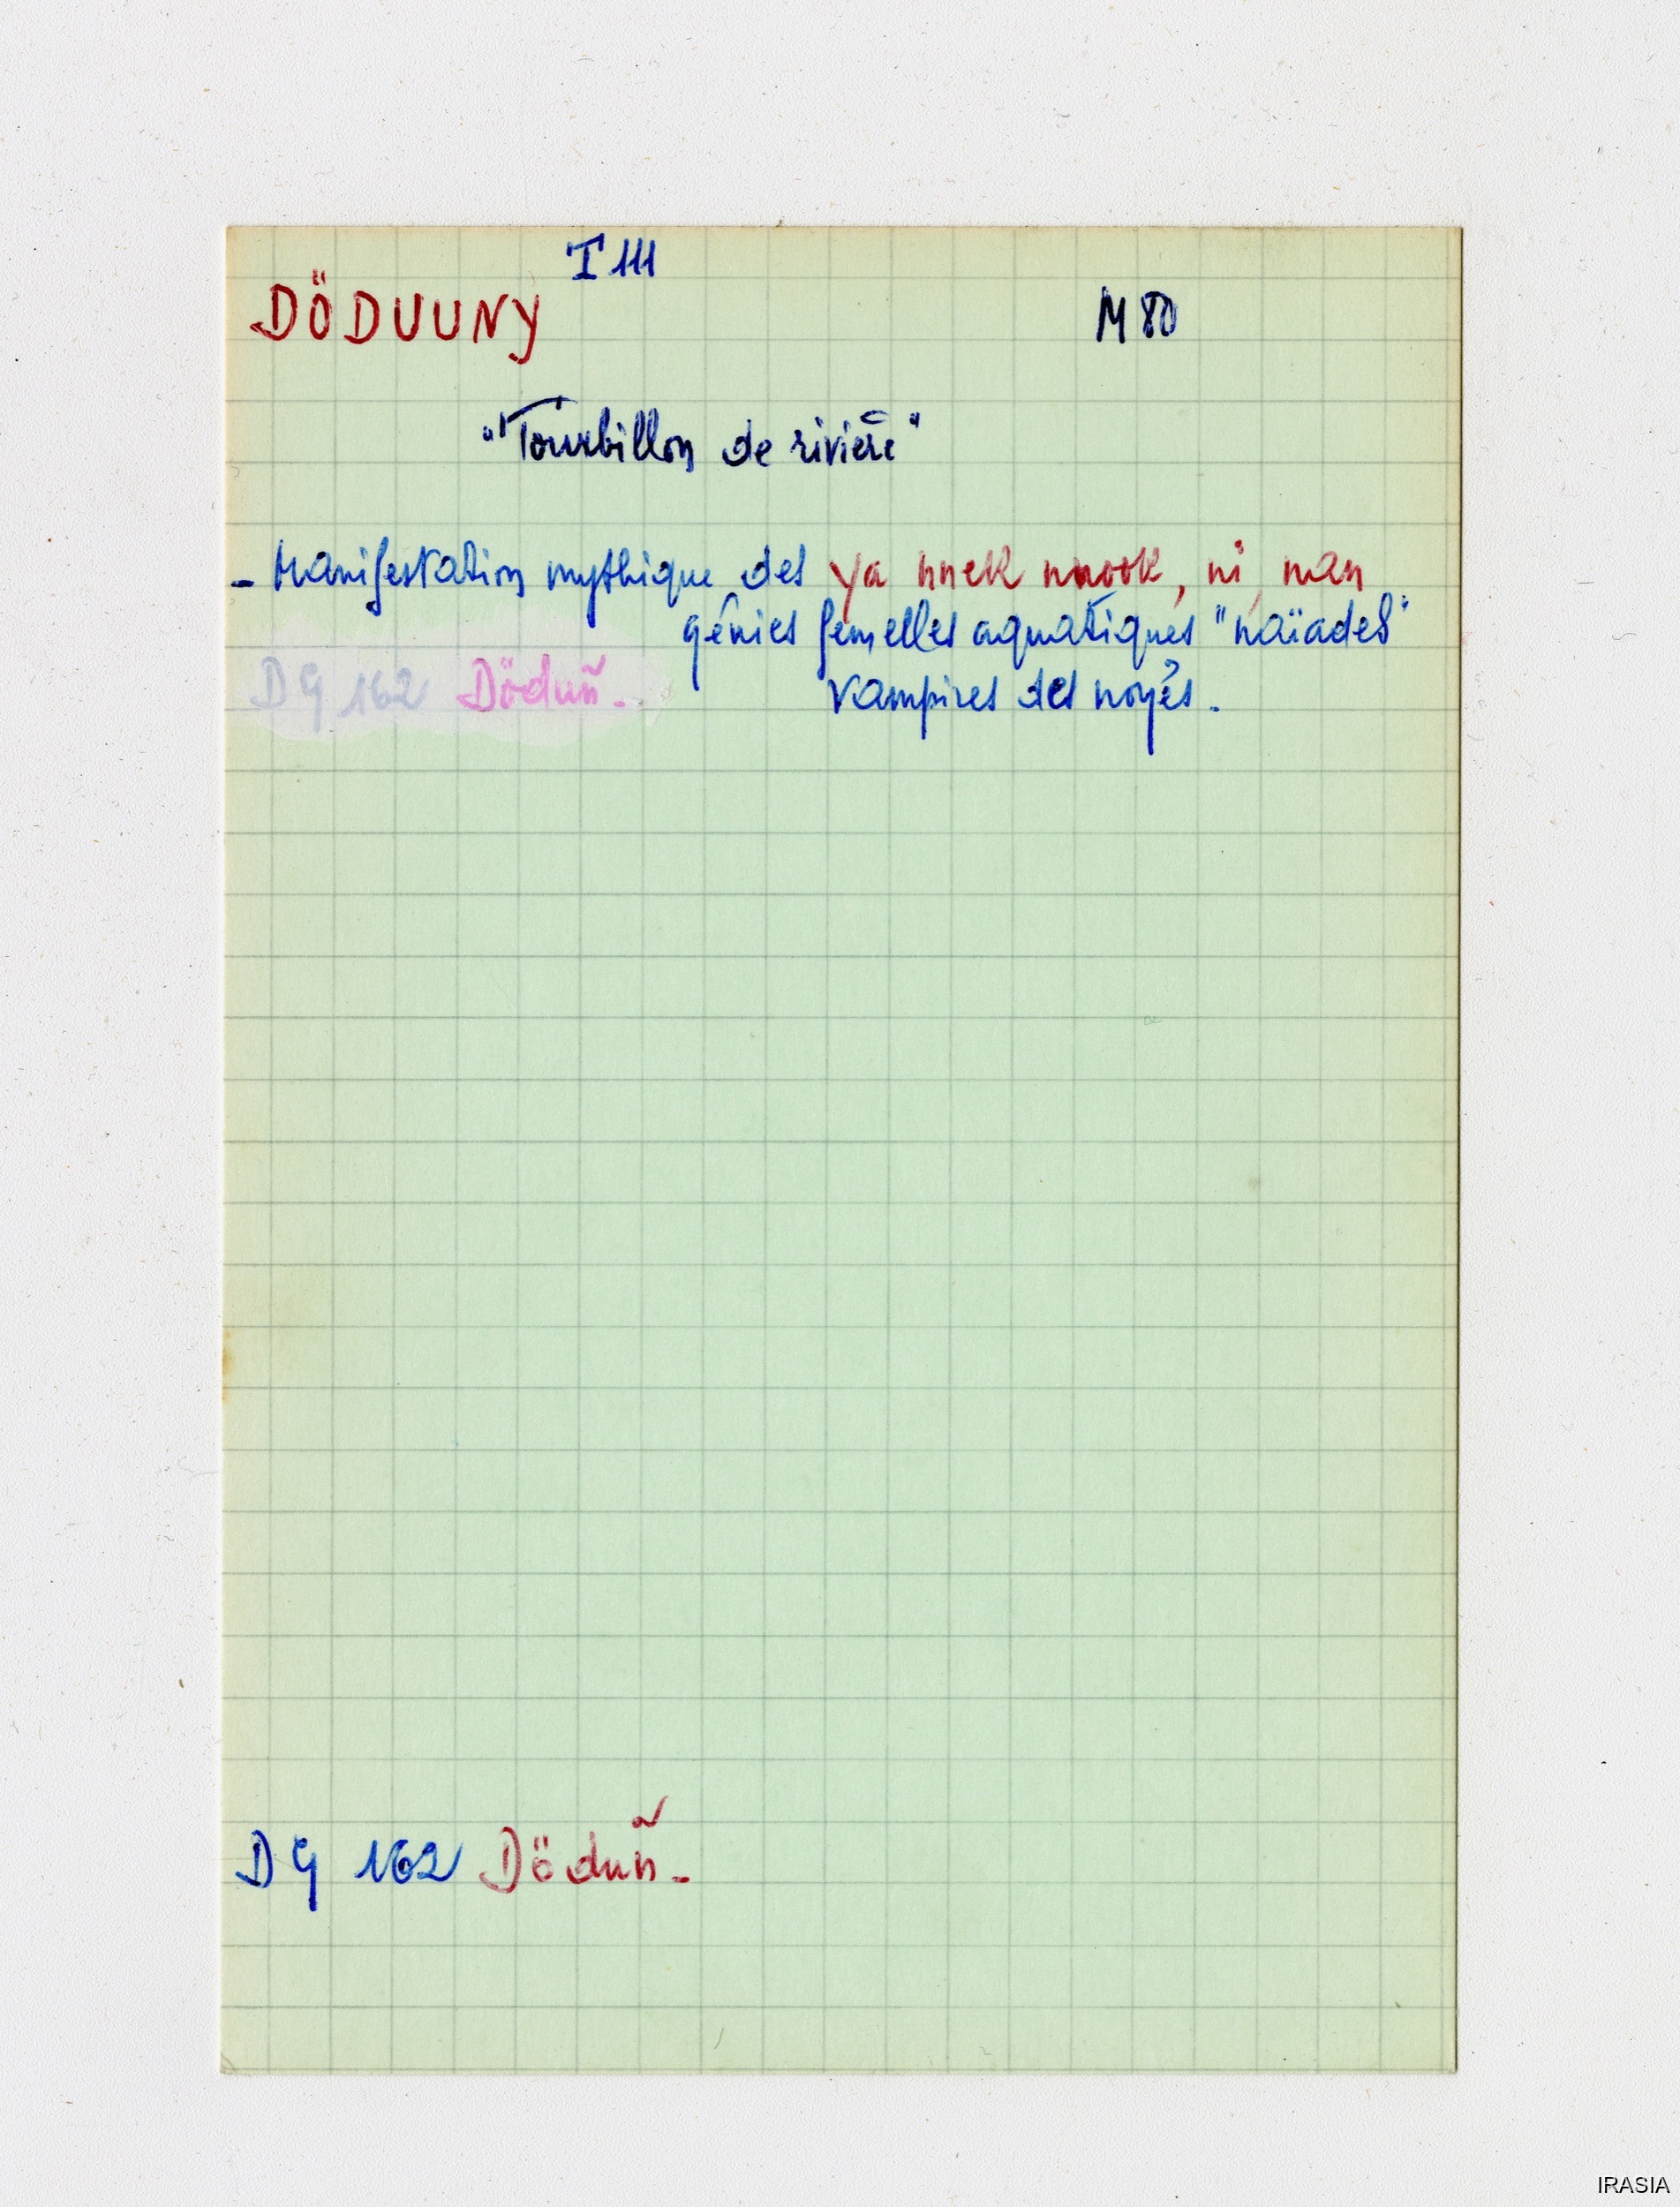 I 111
DÖDUUNY M 80
"Tourbillon de rivière"
- Manifestation mythique des ya nnek nnook, ni nan
génies femelles aquatiques "naïades"
DG 162 Döduñ. vampires des noyés.
DG 162 Döduñ.
IRASIA